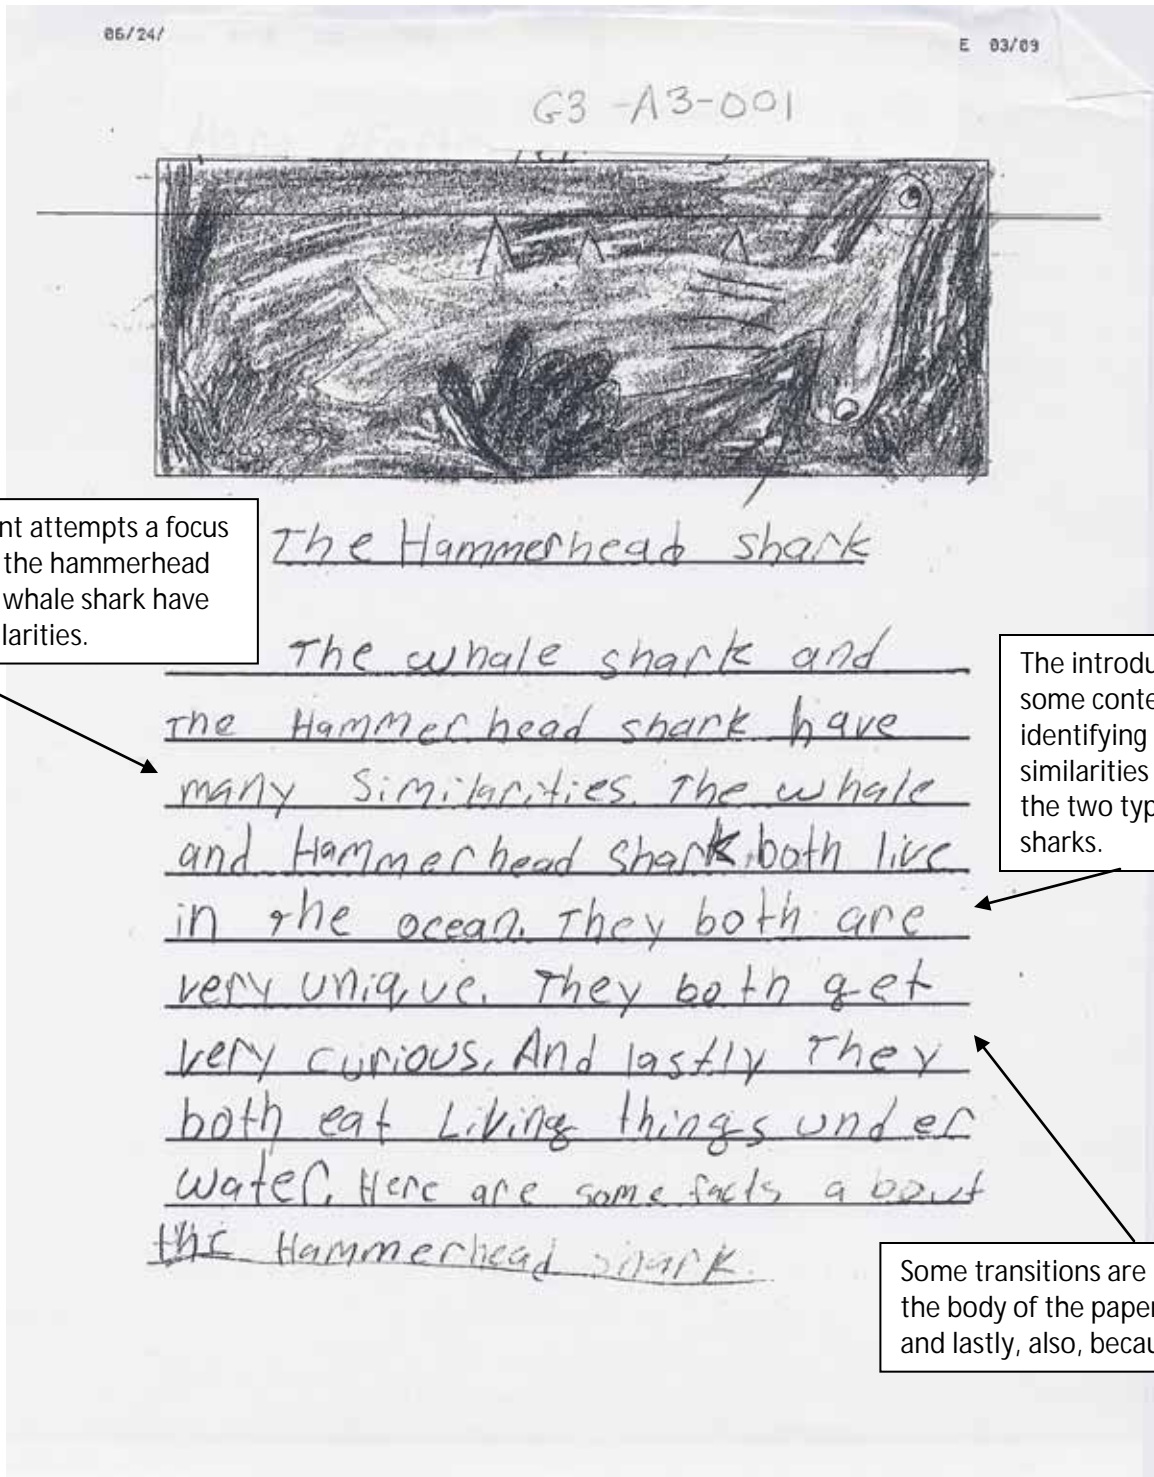 06/24/
E 03/09
G3-A3-001
The Hammerhead shark
nt attempts a focus
the hammerhead
whale shark have
larities.
The whale shark and
The Hammerhead shark have
many Similarities. The whale
and Hammerhead Shark both live
in the ocean. They both are
very unique. They both get
very curious. And lastly They
both eat Living things under
water. Here are some facts a bout
the Hammerhead shark.
The introdu
some conte
identifying
similarities
the two typ
sharks.
Some transitions are
the body of the paper
and lastly, also, becau